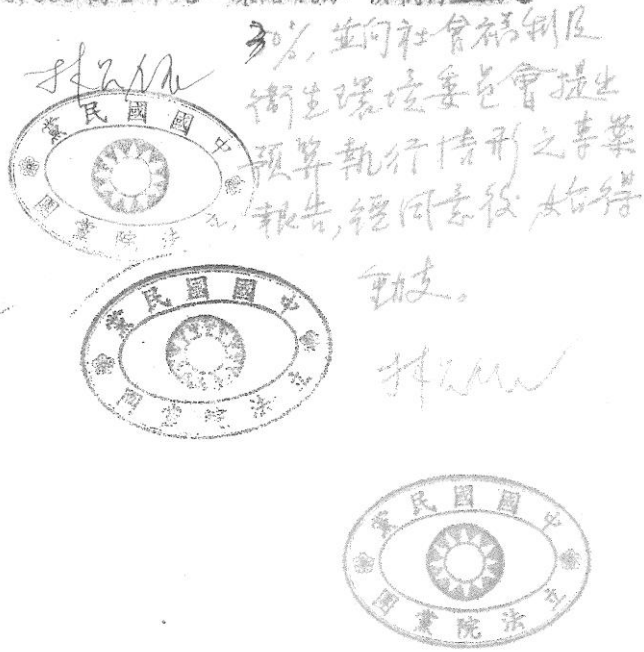 30%, 並向社會福利及
衛生環境委員會提出
預算執行情形之專案
報告,經同意後始得
動支。
中國國民黨
立法院黨團
中國國民黨
立法院黨團
中國國民黨
立法院黨團